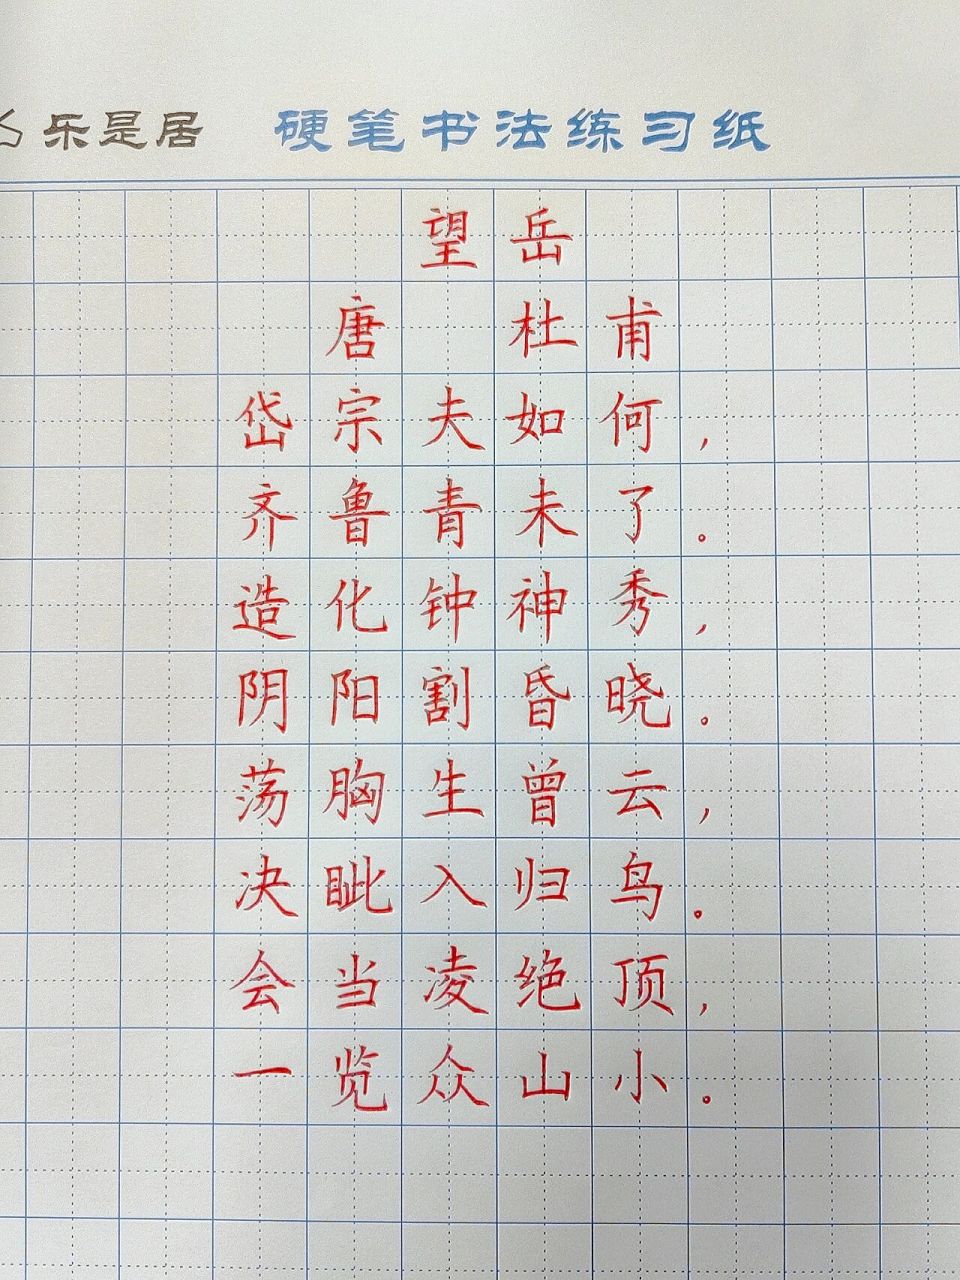 乐是居 硬笔书法练习纸
望岳
唐 杜甫
岱宗夫如何，
齐鲁青未了。
造化钟神秀，
阴阳割昏晓。
荡胸生曾云，
决眦入归鸟。
会当凌绝顶，
一览众山小。